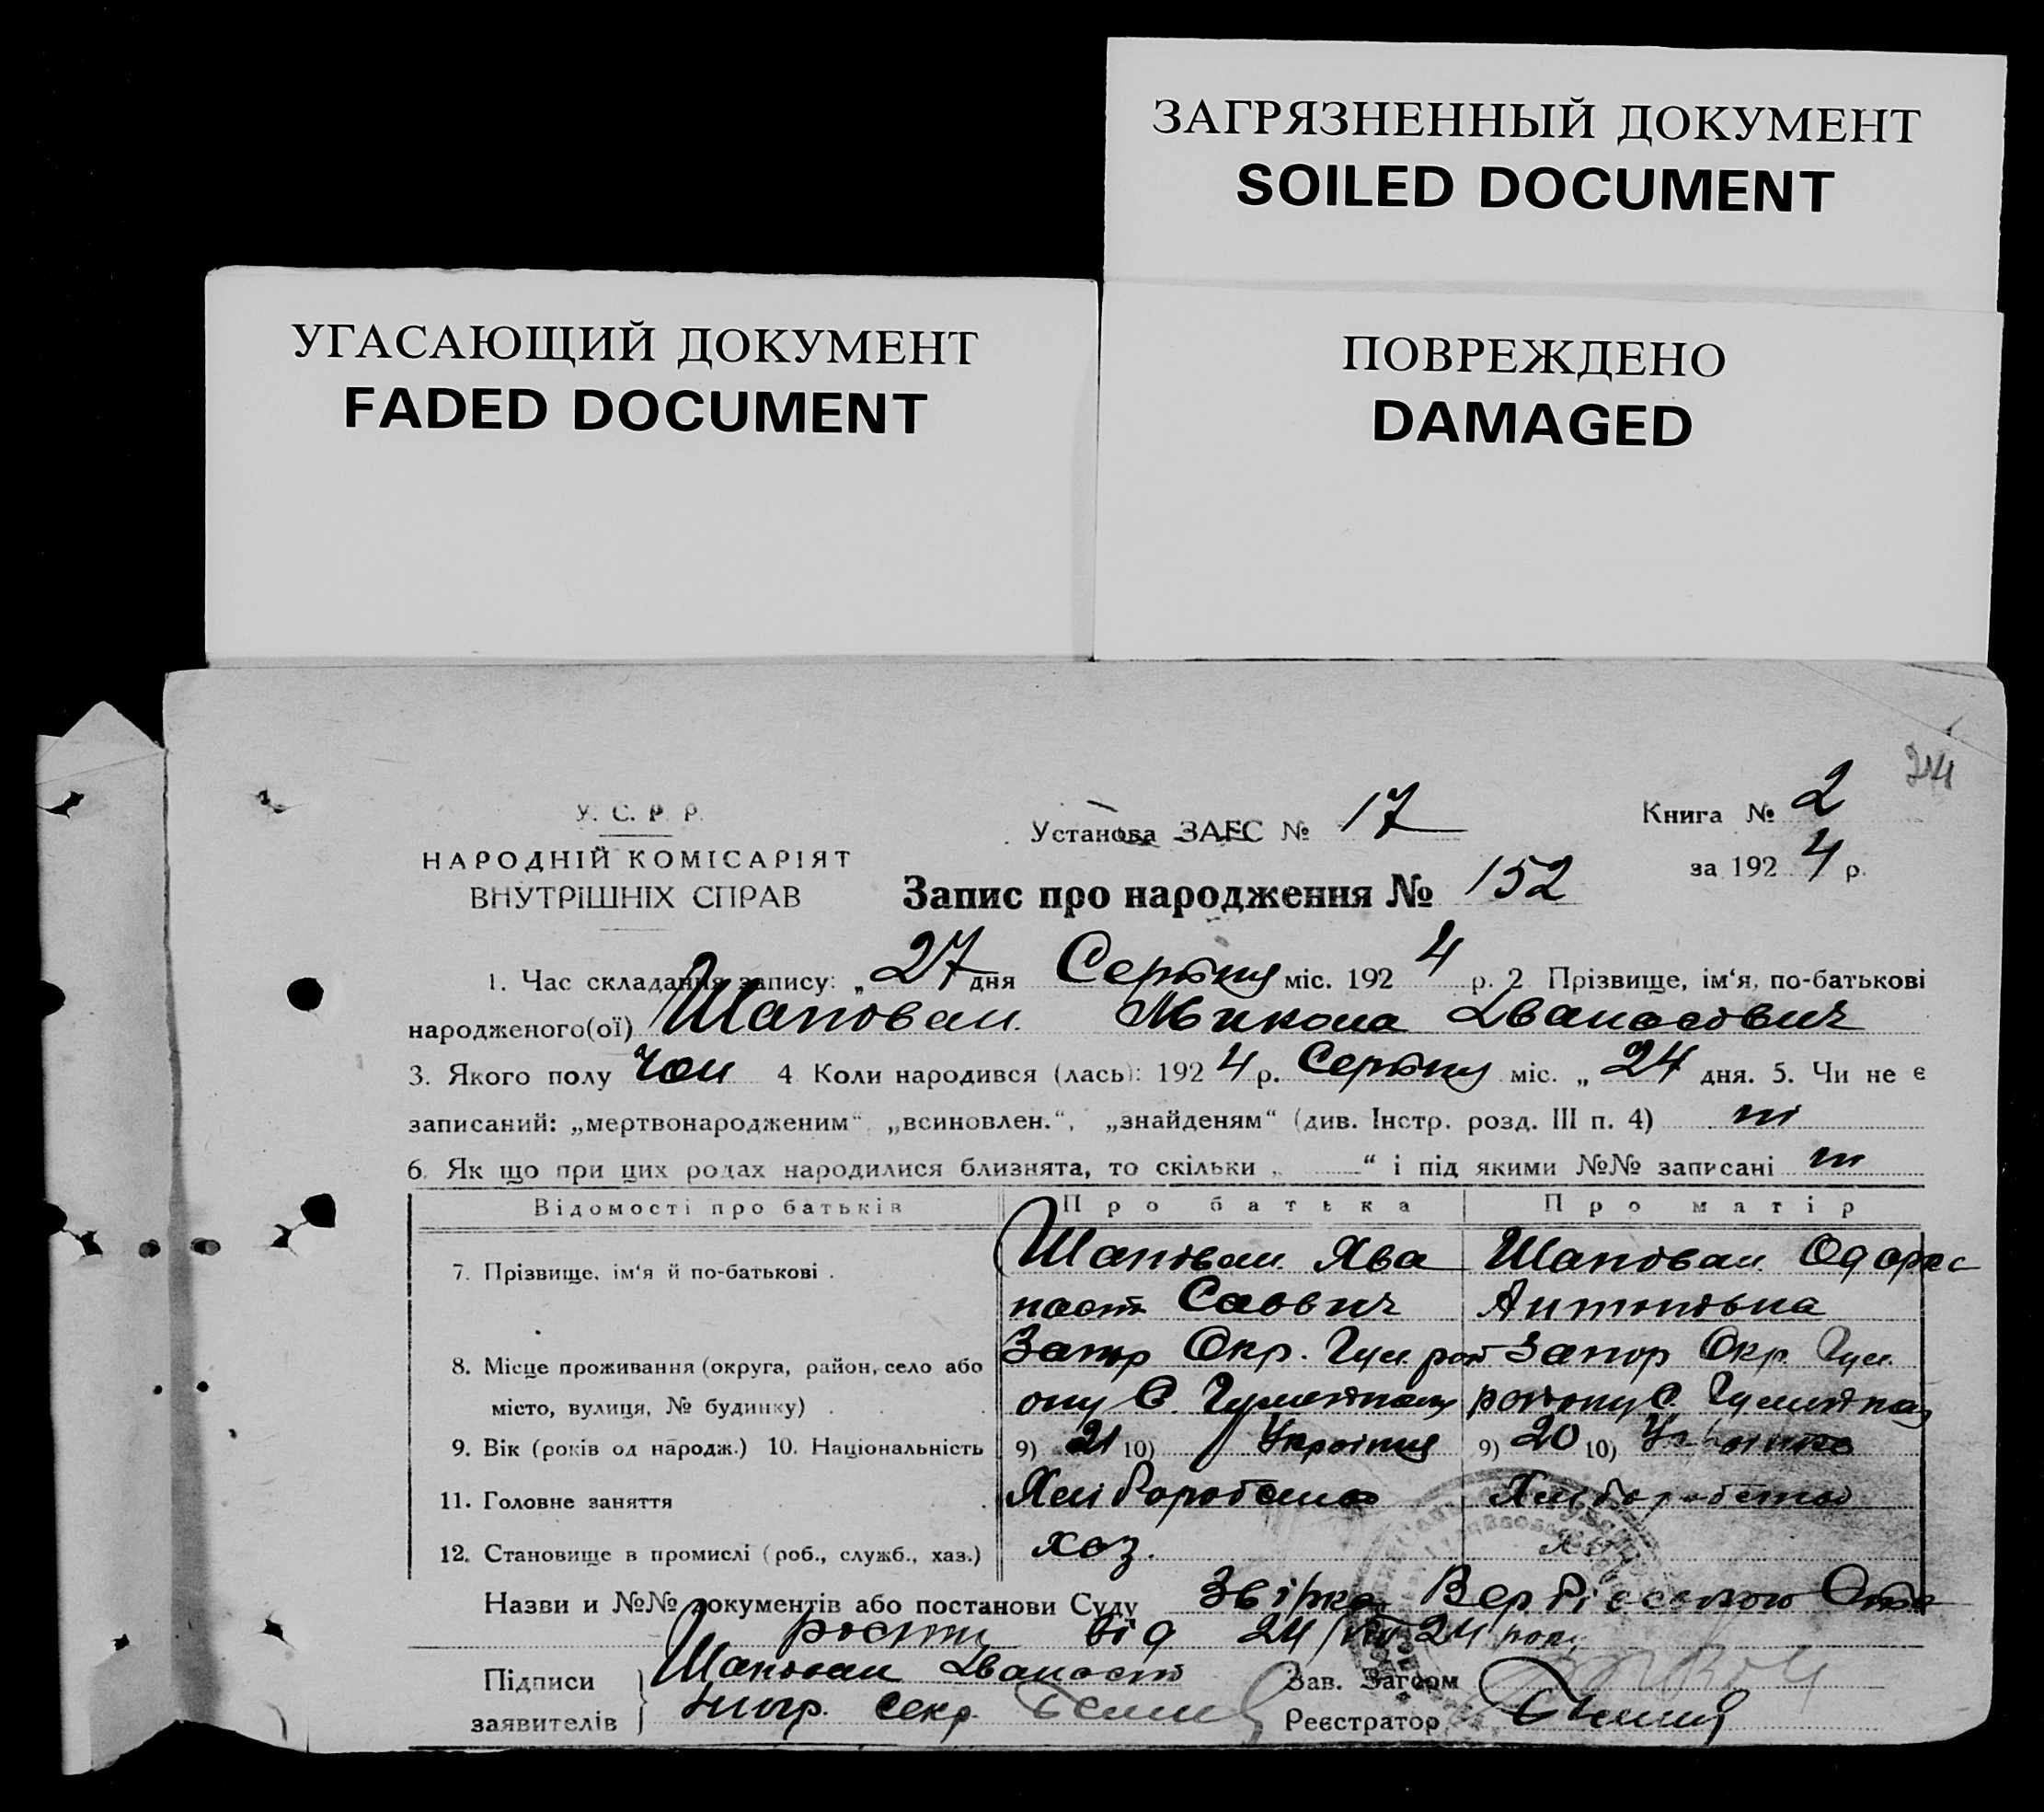 ЗАГРЯЗНЕННЫЙ ДОКУМЕНТ
SOILED DOCUMENT
УГАСАЮЩИЙ ДОКУМЕНТ
FADED DOCUMENT
ПОВРЕЖДЕНО
DAMAGED
У. С. Р. Р.
НАРОДНІЙ КОМІСАРІЯТ
ВНУТРІШНІХ СПРАВ
Установа ЗАГС № 17
Книга № 2
за 1924 р.
Запис про народження № 152
1. Час складання запису: „ 27 дня Серпня міс. 1924 р. 2 Прізвище, ім‘я, по-батькові
народженого(ої) Шаповал Микола
3. Якого полу Чол 4 Коли народився (лась): 1924 р. Серпня міс. „ 24 дня. 5. Чи не є
записаний: „мертвонародженим“ „всиновлен.“, „знайденям“ (див. Інстр. розд. III п. 4) ні
6. Як що при цих родах народилися близнята, то скільки „ “ і під якими №№ записані ні
Відомості про батьків Про батька Про матір
7. Прізвище, ім‘я й по-батькові . Шаповал Шаповал Одарка
Савович Антонівна
8. Місце проживання (округа, район, село або Запор Окр. Гул. рай Запор Окр. Гул.
місто, вулиця, № будинку) . ону С. району С.
9. Вік (років од народж.) 10. Національність 9) 21 10) Українця 9) 20 10) Українка
11. Головне заняття . Хліборобство Хліборобство
12. Становище в промислі (роб., служб., хаз.) хоз.
Назви и №№ документів або постанови Суду
від 24/VIII 24 року
Підписи Шаповал
заявителів секр.
Зав. Загсом
Реєстратор